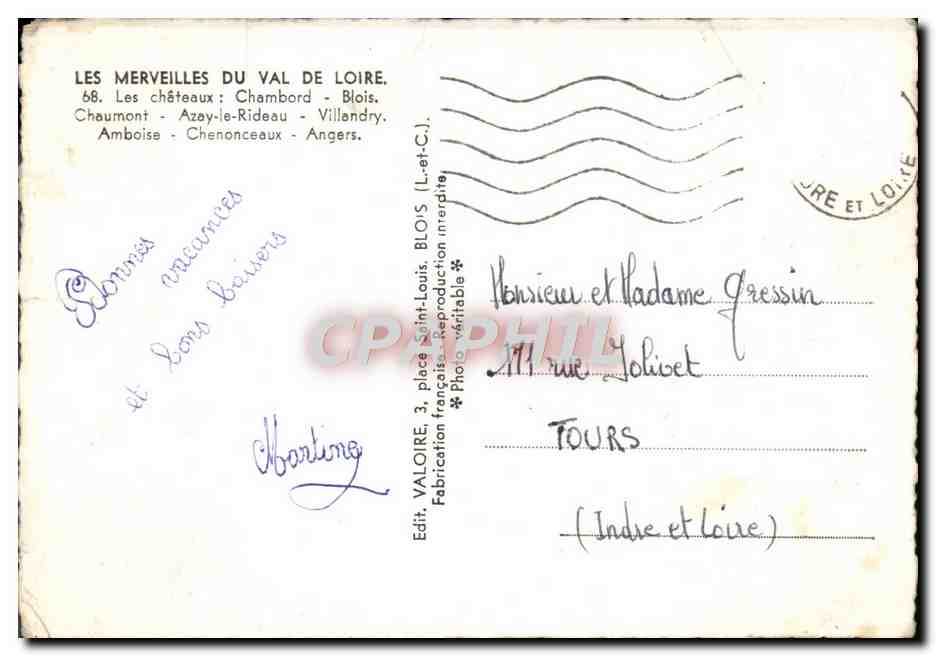 LES MERVEILLES DU VAL DE LOIRE.
68. Les châteaux : Chambord - Blois.
Chaumont - Azay-le-Rideau - Villandry.
Amboise - Chenonceaux - Angers.
Bonnes
vacances
et bons baisers
Martine
Edit. VALOIRE, 3, place Saint-Louis, BLOIS (L.-et-C.).
Fabrication française - Reproduction interdite
✻ Photo véritable ✻
DRE ET LOIRE
Monsieur et Madame Gressin
171 rue Jolivet
TOURS
(Indre et Loire)
CPAPHIL